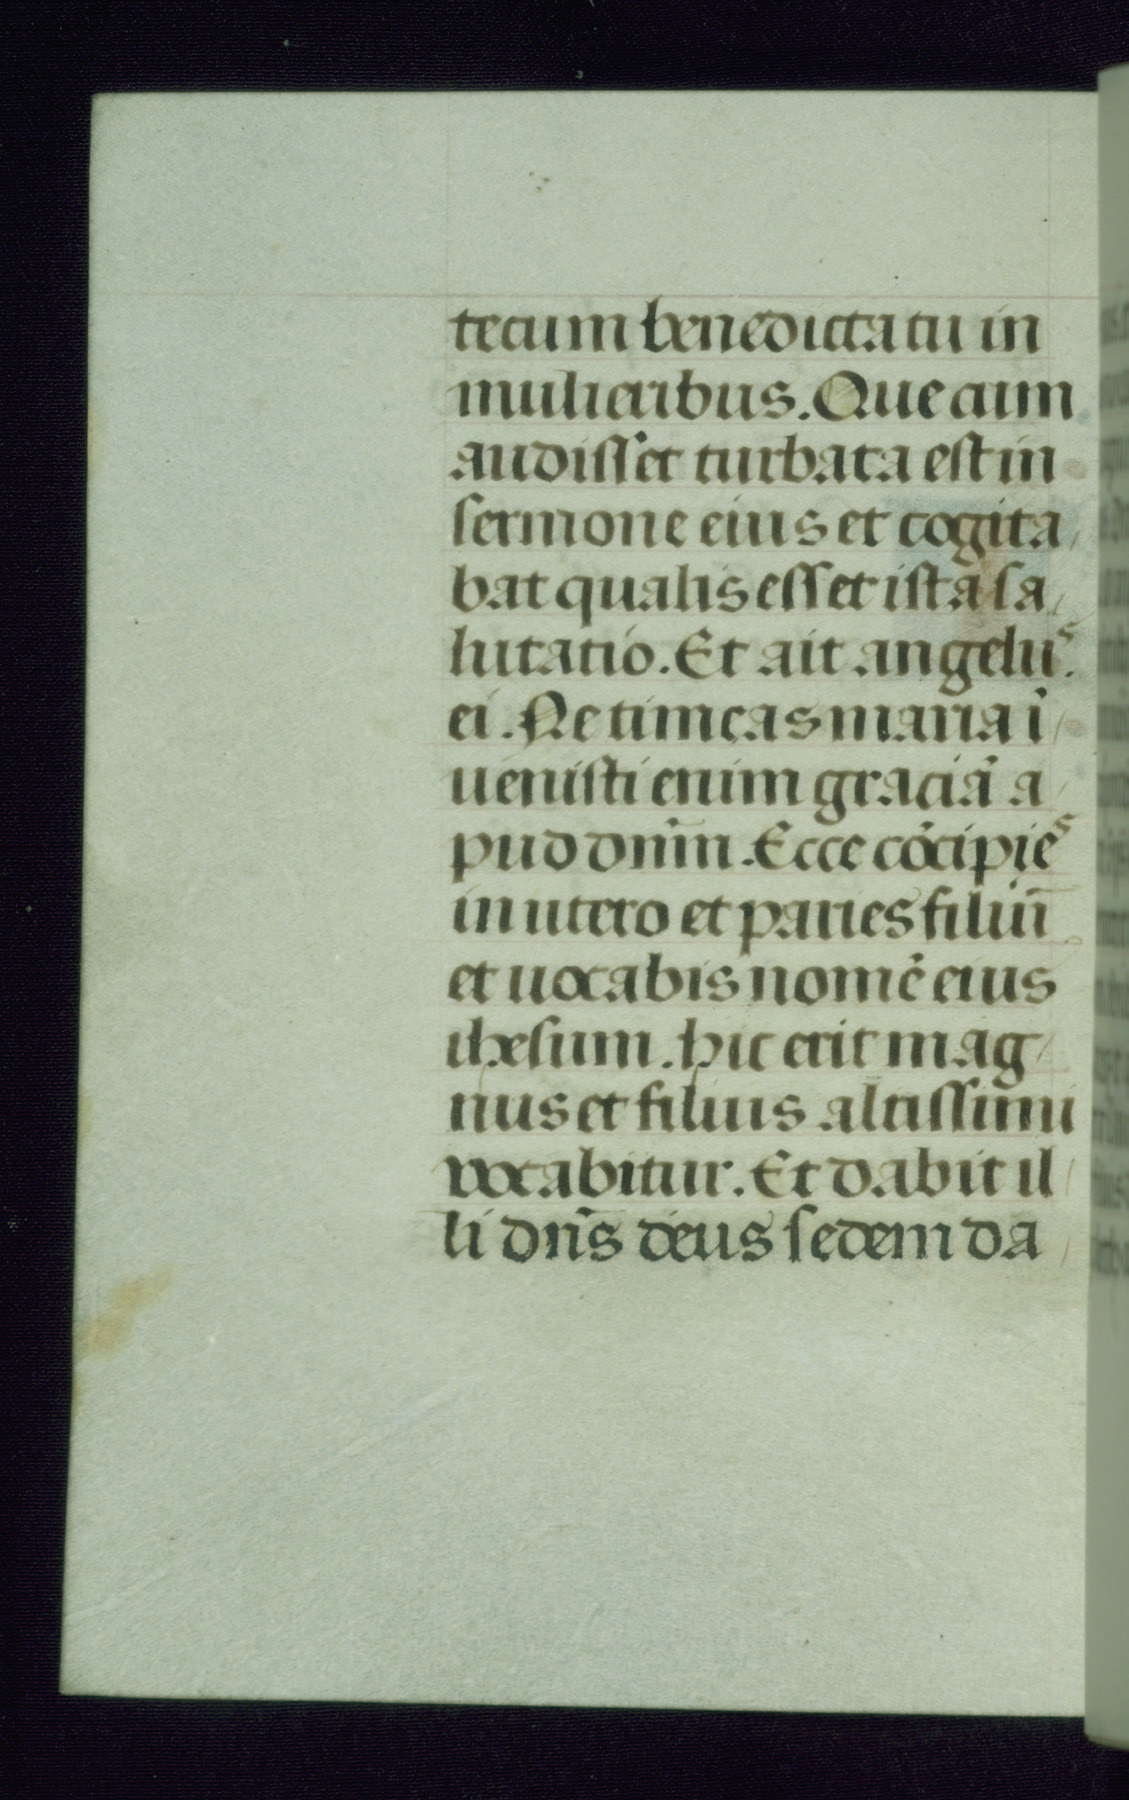 tecum benedicta tu in
mulieribus. Que cum
audisset turbata est in
sermone eius et cogita/
bat qualis esset ista sa/
lutatio. Et ait angelus.
ei. Ne timeas maria ī/
uenisti enim graciā a/
pud dn̄m. Ecce cōcipies
in utero et paries filiū
et uocabis nomē eius
ihesum. hic erit mag/
nus et filius altissimi
vocabitur. Et dabit il/
li dn̄s deus sedem da/